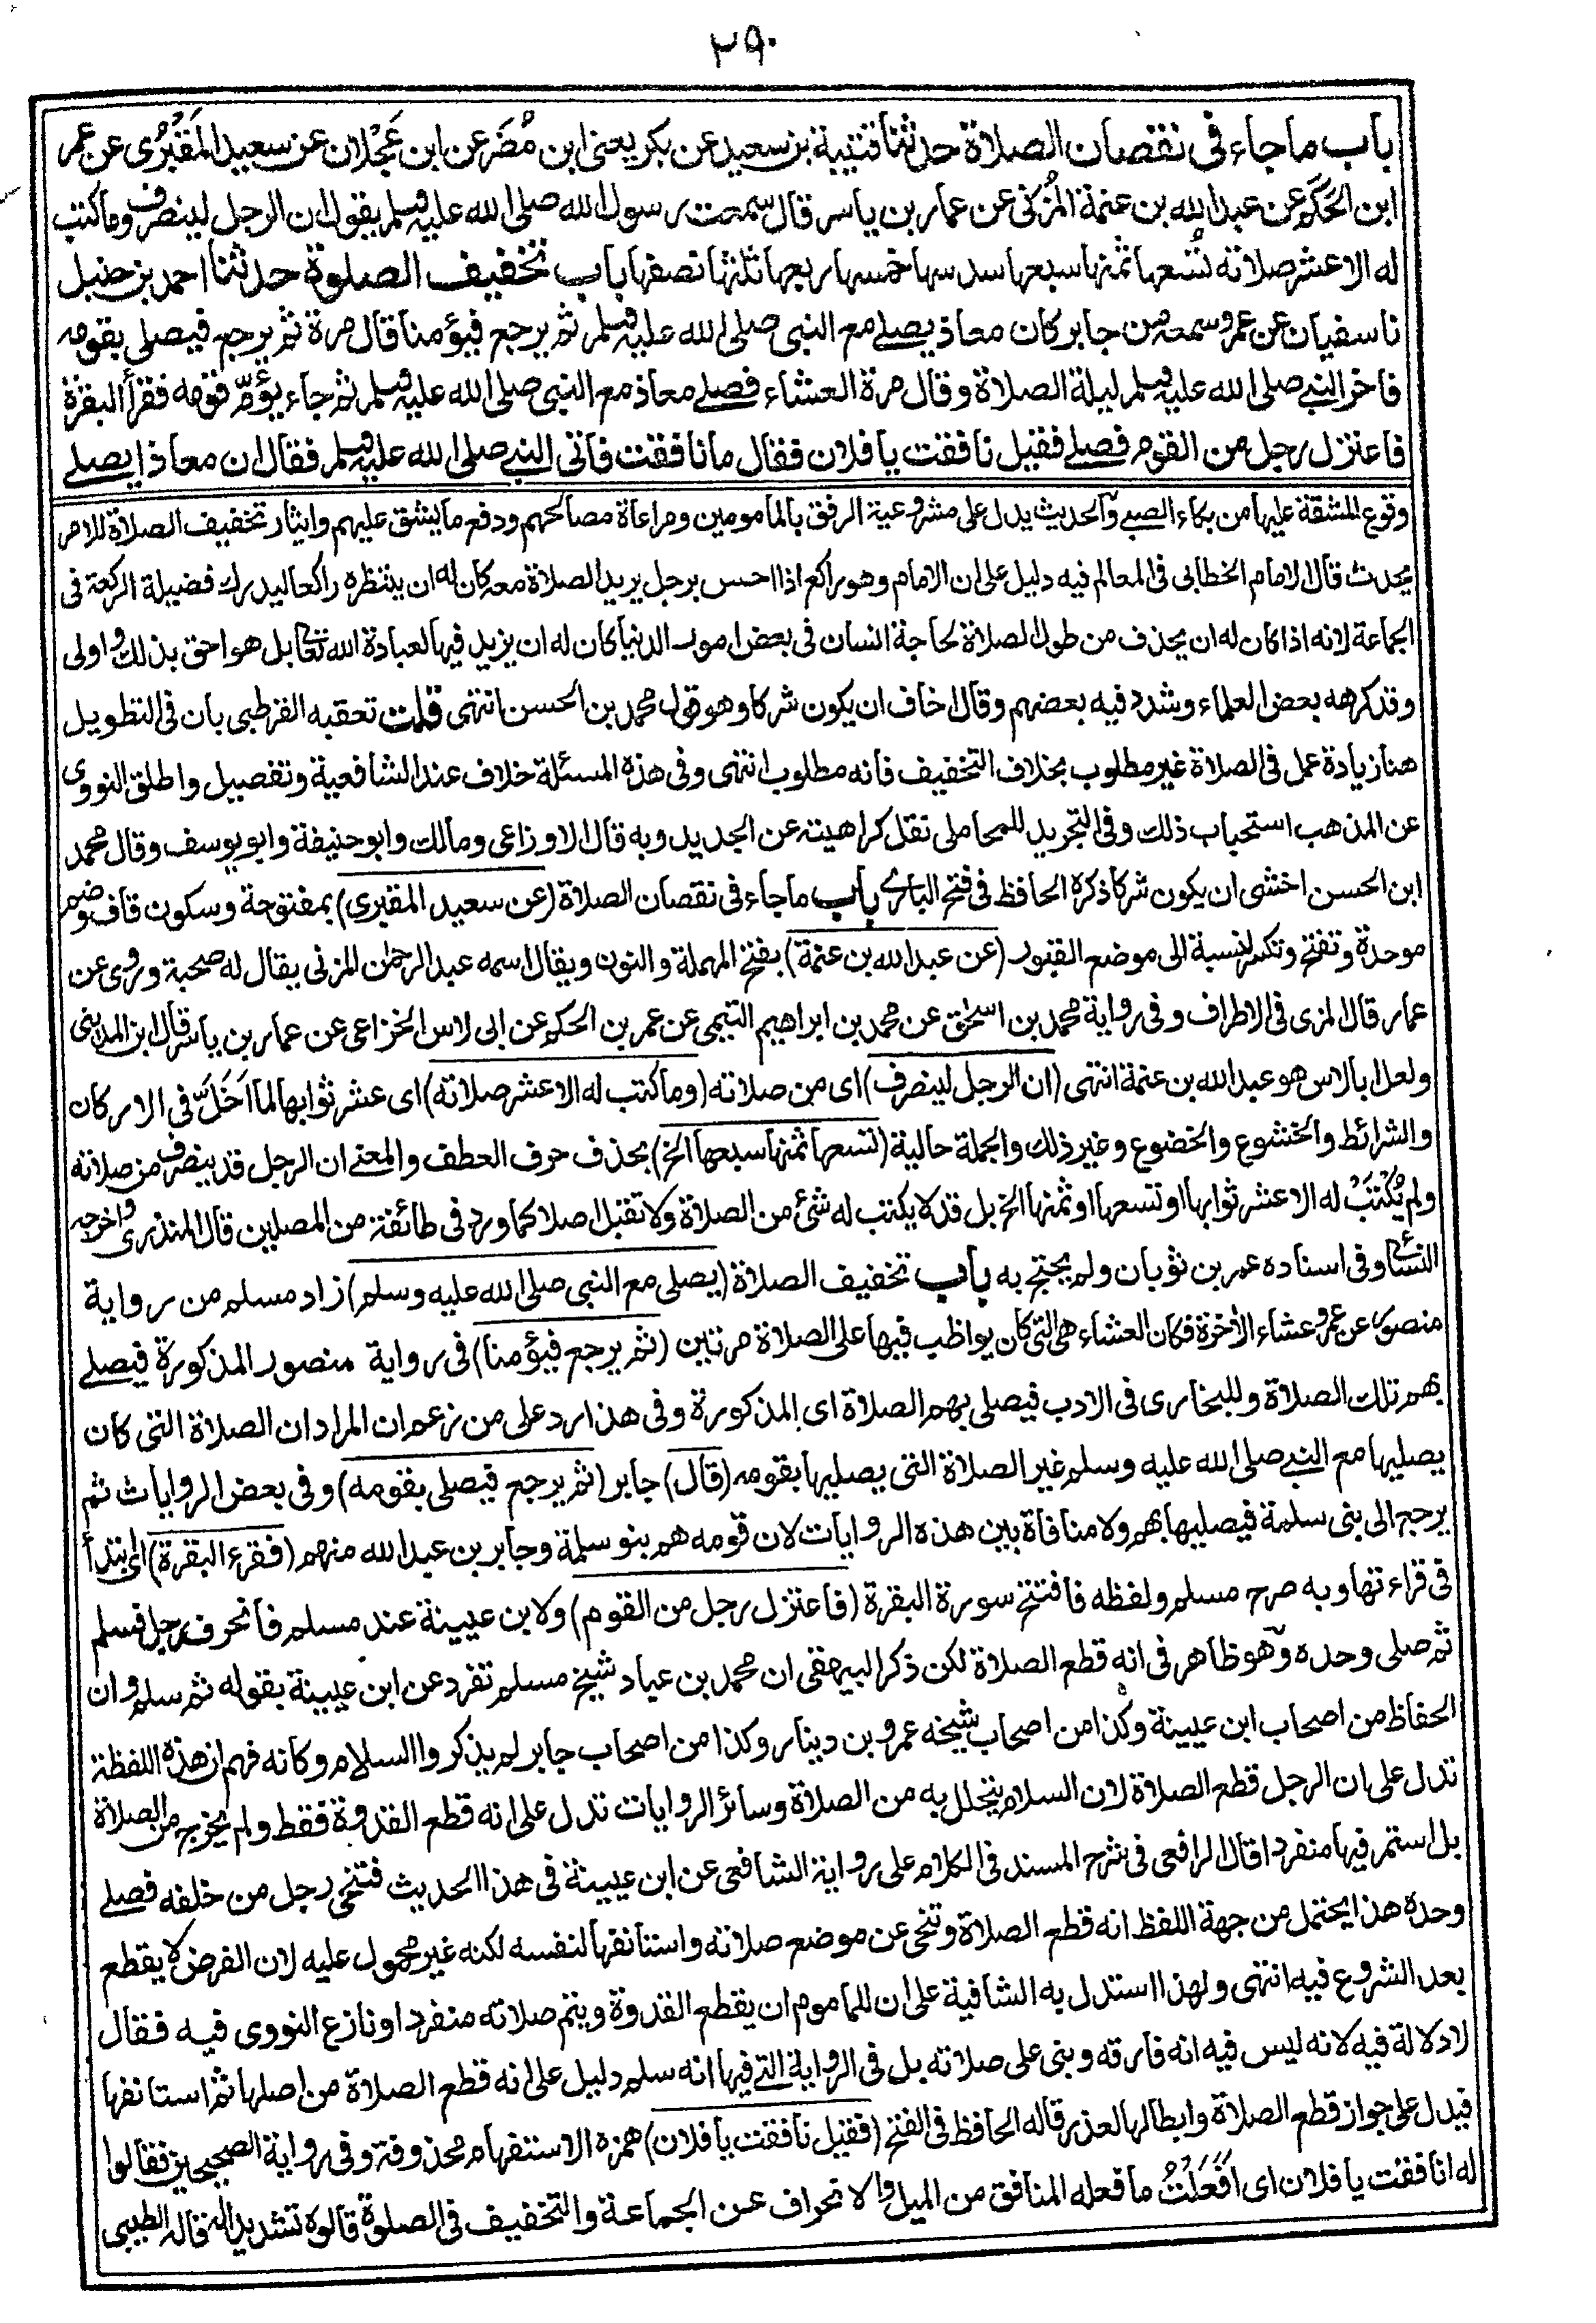 ٢٩٠
باب ماجاء فى نقصان الصلاة حدثنا قتيبة بن سعيد عن بكر يعنى ابن مُضَر عن ابن عَجْلان عن سعيد المَقْبُرى عن عمر
ابن الحَكَم عن عبد الله بن عنمة المُزَنى عن عمار بن ياسر قال سمعت رسول الله صلى الله عليه وسلم يقول ان الرجل لينصرف وما كتب
له الا عشر صلاته تُسُعها ثمنها سبعها سدسها خمسها ربعها ثلثها نصفها باب تخفيف الصلوة حدثنا احمد بن حنبل
نا سفيان عن عمرو سمعه من جابر كان معاذ يصلے مع النبى صلى الله عليه وسلم ثم يرجع فيؤمنا قال مرة ثم يرجع فيصلى بقومه
فاخر النبے صلى الله عليه وسلم ليلة الصلاة وقال مرة العشاء فصلے معاذ مع النبى صلى الله عليه وسلم ثم جاء يؤمّ قومه فقرأ البقرة
فاعتزل رجل من القوم فصلے فقيل نافقت يا فلان فقال ما نافقت فاتى النبے صلى الله عليه وسلم فقال ان معاذا يصلے
وقوع المشقة عليها من بكاء الصبے والحديث يدل على مشروعية الرفق بالمامومين ومراعاة مصالحهم ودفع ما يشق عليهم وايثار تخفيف الصلاة للامر
يحدث قال الامام الخطابى فى المعالم فيه دليل على ان الامام وهو راكع اذا احس برجل يريد الصلاة معه كان له ان ينتظره راكعا ليدرك فضيلة الركعة فى
الجماعة لانه اذا كان له ان يحذف من طول الصلاة لحاجة انسان فى بعض امور الدنيا كان له ان يزيد فيها لعبادة الله تعالى بل هو احق بذلك واولى
وقد كرهه بعض العلماء وشدد فيه بعضهم وقال اخاف ان يكون شركا وهو قول محمد بن الحسن انتهى قلت تعقبه القرطبى بان فى التطويل
هنا زيادة عمل فى الصلاة غير مطلوب بخلاف التخفيف فانه مطلوب انتهى وفى هذه المسئلة خلاف عند الشافعية وتفصيل واطلق النووى
عن المذهب استحباب ذلك وفى التجريد للمحاملى نقل كراهيته عن الجديد وبه قال الاوزاعى ومالك وابو حنيفة وابو يوسف وقال محمد
ابن الحسن اخشى ان يكون شركا ذكره الحافظ فى فتح البارى باب ماجاء فى نقصان الصلاة (عن سعيد المقبرى) بمفتوحة وسكون قاف وضم
موحدة وتفتح وتكسر نسبة الى موضع القبور (عن عبد الله بن عنمة) بفتح المهملة والنون ويقال اسمه عبد الرحمن المزنى يقال له صحبة وروى عن
عمار قال المزى فى الاطراف وفى رواية محمد بن اسحق عن محمد بن ابراهيم التيمى عن عمر بن الحكم عن ابى لاس الخزاعى عن عمار بن ياسر قال ابن المدينى
ولعل ابا لاس هو عبد الله بن عنمة انتهى (ان الرجل لينصرف) اى من صلاته (وما كتب له الا عشر صلاته) اى عشر ثوابها لما اَخَلَّ فى الاركان
والشرائط والخشوع والخضوع وغير ذلك والجملة حالية (تسعها ثمنها سبعها الخ) بحذف حرف العطف والمعنے ان الرجل قد ينصرف من صلاته
ولم يُكْتَبْ له الا عشر ثوابها او تسعها او ثمنها الخ بل قد لا يكتب له شئ من الصلاة ولا تقبل اصلا كما ورد فى طائفة من المصلين قال المنذرى واخرجه
النسائى وفى اسناده عمر بن ثوبان ولم يحتج به باب تخفيف الصلاة (يصلى مع النبى صلى الله عليه وسلم) زاد مسلم من رواية
منصور عن عمرو عشاء الاٰخرة فكان العشاء هى التى كان يواظب فيها على الصلاة مرتين (ثم يرجع فيؤمنا) فى رواية منصور المذكورة فيصلے
بهم تلك الصلاة وللبخارى فى الادب فيصلى بهم الصلاة اى المذكورة وفى هذا رد على من زعم ان المراد ان الصلاة التى كان
يصليها مع النبے صلى الله عليه وسلم غير الصلاة التى يصليها بقومه (قال) جابر (ثم يرجع فيصلى بقومه) وفى بعض الروايات ثم
يرجع الى بنى سلمة فيصليها بهم ولا منافاة بين هذه الروايات لان قومه هم بنو سلمة وجابر بن عبد الله منهم (فقرء البقرة) اى ابتدأ
فى قراءتها وبه صرح مسلم ولفظه فافتتح سورة البقرة (فاعتزل رجل من القوم) ولابن عيينة عند مسلم فانحرف رجل فسلم
ثم صلى وحده وهو ظاهر فى انه قطع الصلاة لكن ذكر البيهقى ان محمد بن عباد شيخ مسلم تفرد عن ابن عيينة بقوله ثم سلم وان
الحفاظ من اصحاب ابن عيينة وكذا من اصحاب شيخه عمرو بن دينار وكذا من اصحاب جابر لم يذكروا السلام وكانه فهم ان هذه اللفظة
تدل على ان الرجل قطع الصلاة لان السلام يتحلل به من الصلاة وسائر الروايات تدل على انه قطع القدوة فقط ولم يخرج من الصلاة
بل استمر فيها منفردا قال الرافعى فى شرح المسند فى الكلام على رواية الشافعى عن ابن عيينة فى هذا الحديث فتنحى رجل من خلفه فصلے
وحده هذا يحتمل من جهة اللفظ انه قطع الصلاة وتنحى عن موضع صلاته واستانفها لنفسه لكنه غير محمول عليه لان الفرض لا يقطع
بعد الشروع فيه انتهى ولهذا استدل به الشافية على ان للماموم ان يقطع القدوة ويتم صلاته منفردا ونازع النووى فيه فقال
لا دلالة فيه لانه ليس فيه انه فارقه وبنى على صلاته بل فى الرواية التے فيها انه سلم دليل على انه قطع الصلاة من اصلها ثم استانفها
فيدل على جواز قطع الصلاة وابطالها لعذر قاله الحافظ فى الفتح (فقيل نافقت يا فلان) همزه الاستفهام محذوفة وفى رواية الصحيحين فقالوا
له انافقت يا فلان اى اَفَعَلْتَ ما فعله المنافق من الميل والانحراف عن الجماعة والتخفيف فى الصلوة قالوه تشديدا له قاله الطيبى